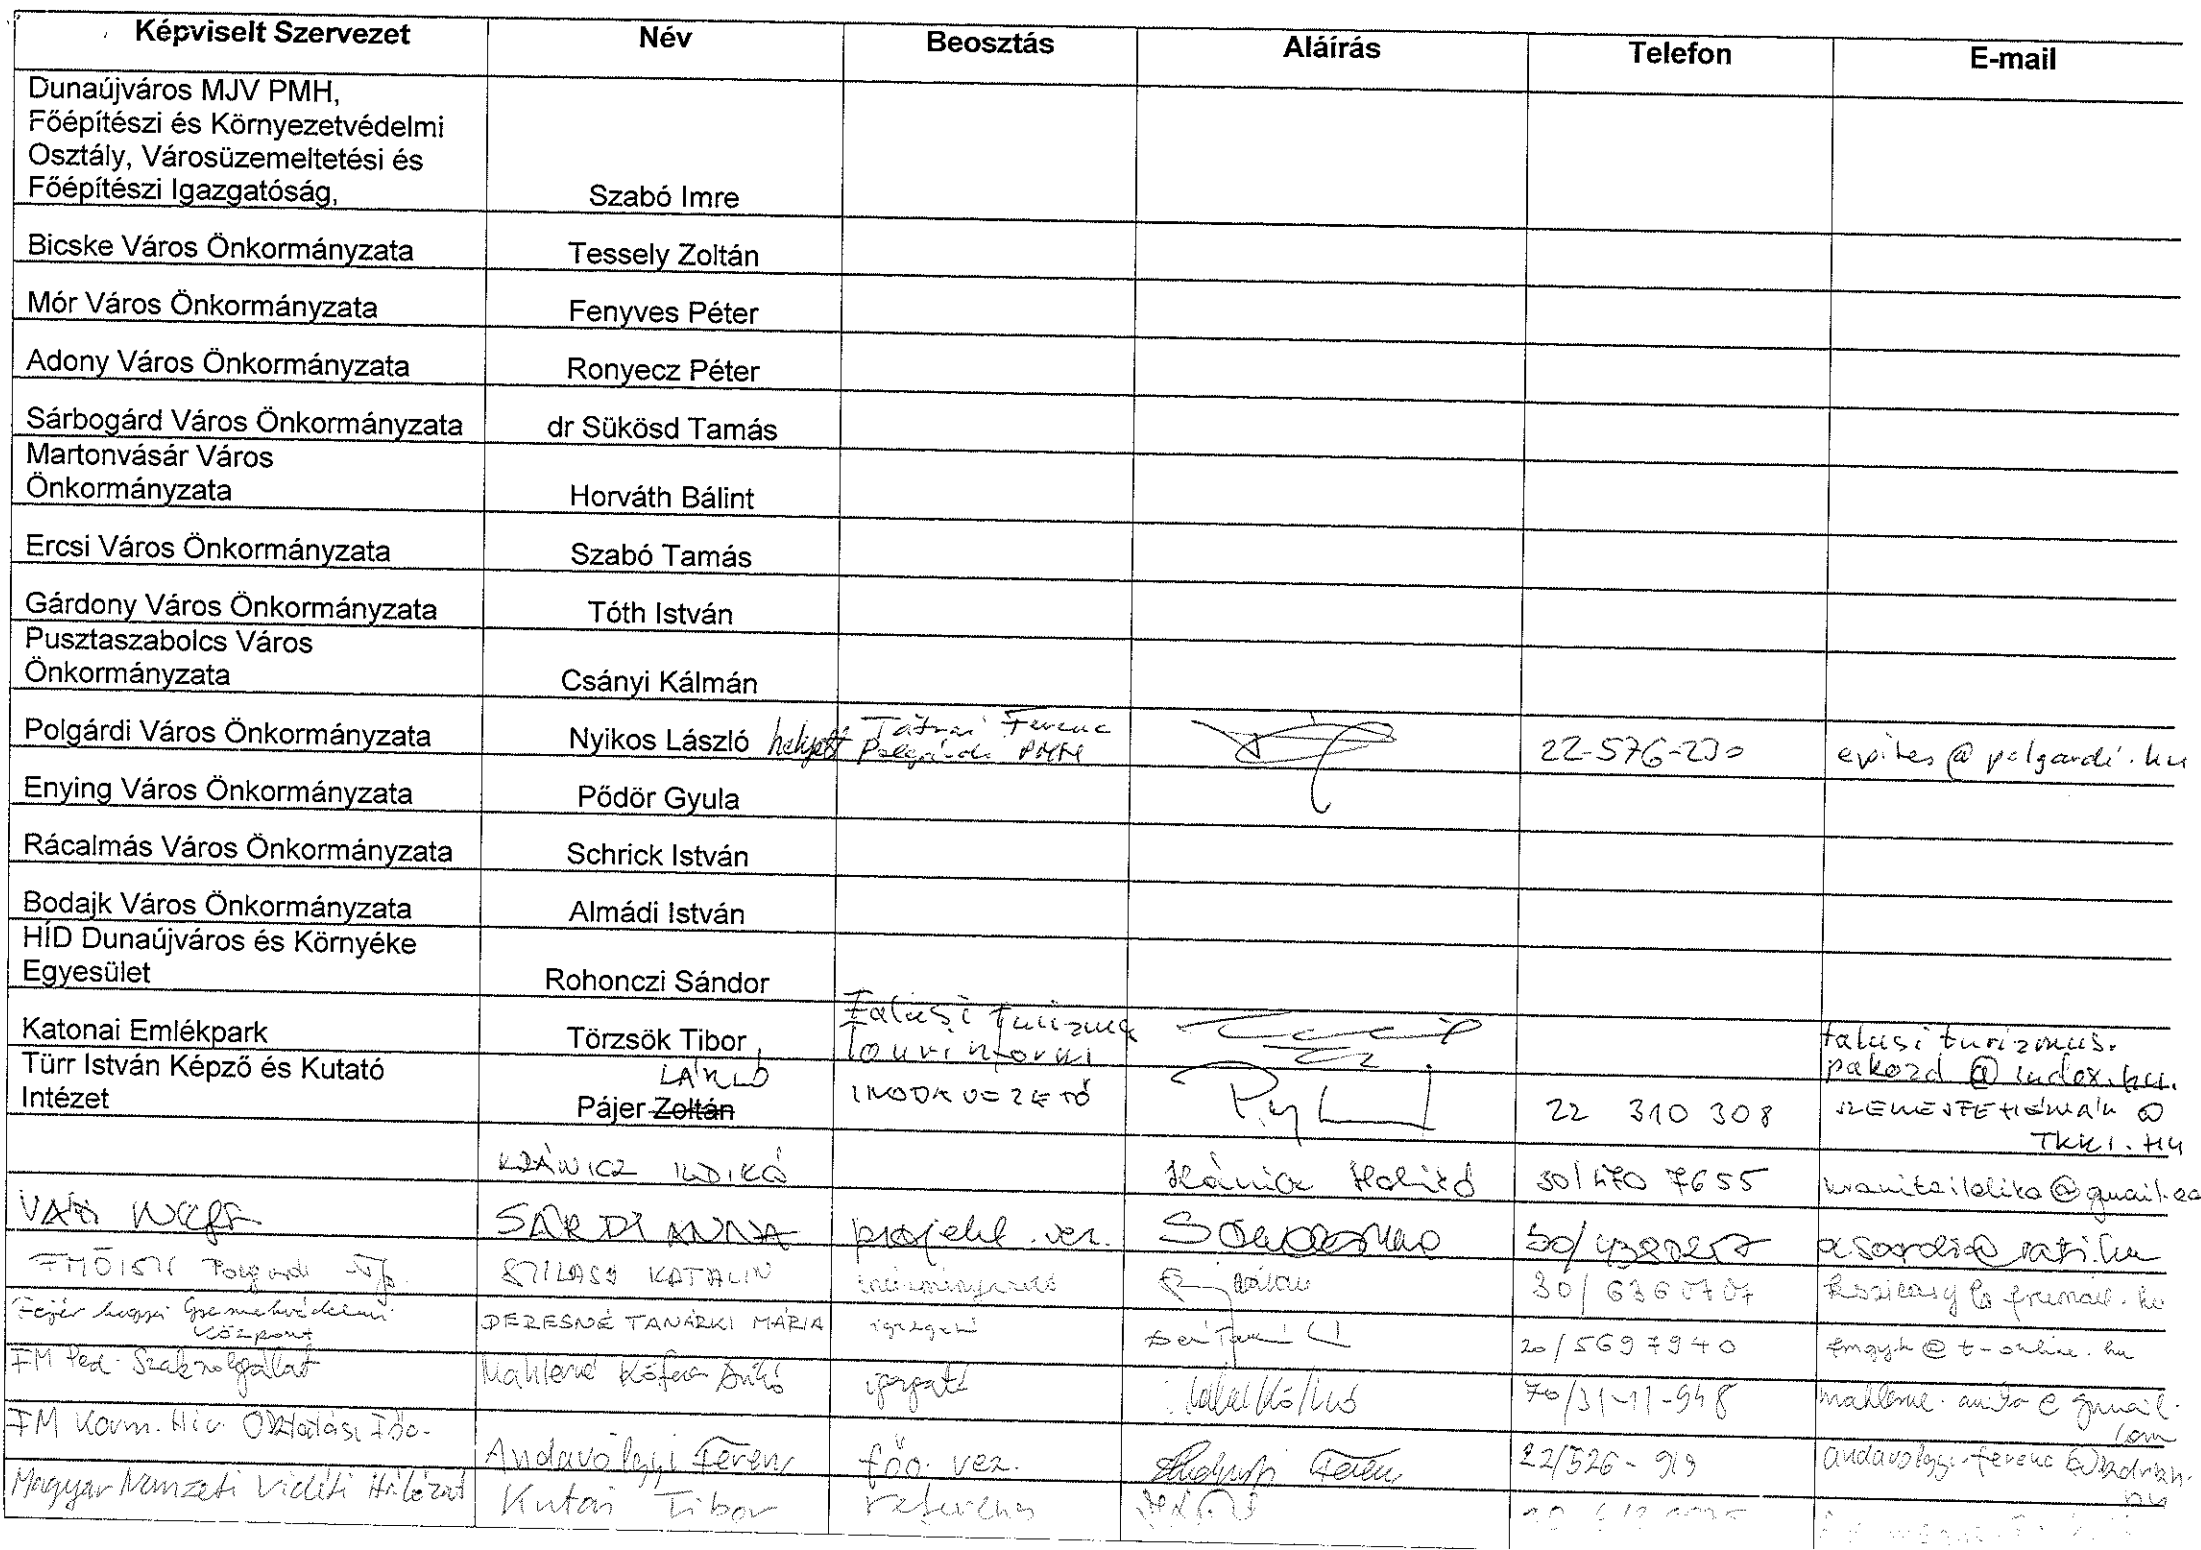 Képviselt Szervezet Név Beosztás Aláírás Telefon E-mail
Dunaújváros MJV PMH,
Főépítészi és Környezetvédelmi
Osztály, Városüzemeltetési és
Főépítészi Igazgatóság, Szabó Imre
Bicske Város Önkormányzata Tessely Zoltán
Mór Város Önkormányzata Fenyves Péter
Adony Város Önkormányzata Ronyecz Péter
Sárbogárd Város Önkormányzata dr Sükösd Tamás
Martonvásár Város
Önkormányzata Horváth Bálint
Ercsi Város Önkormányzata Szabó Tamás
Gárdony Város Önkormányzata Tóth István
Pusztaszabolcs Város
Önkormányzata Csányi Kálmán
Tátrai Ferenc
Polgárdi Város Önkormányzata Nyikos László helyett Polgárdi PMH 22-576-230 epites@polgardi.hu
Enying Város Önkormányzata Pődör Gyula
Rácalmás Város Önkormányzata Schrick István
Bodajk Város Önkormányzata Almádi István
HÍD Dunaújváros és Környéke
Egyesület Rohonczi Sándor
Falusi Turizmus
Katonai Emlékpark Törzsök Tibor Tourinform falusiturizmus.
pakozd@index.hu.
Türr István Képző és Kutató LÁSZLÓ
Intézet Pájer Zoltán IRODAVEZETŐ 22 310 308
TKKI.HU
KRÁNICZ ILDIKÓ 30/470 7655
VÁTI NKft SÁRDI ANNA projekt vez. asardi@vati.hu
SZILASY KATALIN
Fejér megyei Gyermekvédelmi
Központ DEZESNÉ TANÁRKI MÁRIA igazgató 20/5697940 fmgyk@t-online.hu
FM Ped. Szakszolgálat igazgató 70/31-11-948
FM Korm. Hiv. Oktatási Főo. Andavölgyi Ferenc főo. vez. 22/526-919
Magyar Nemzeti Vidéki Hálózat Kutai Tibor referens